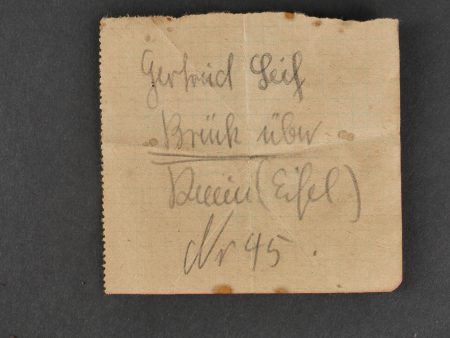 Gertrud
Brück über
Daun (Eifel)
Nr 45.